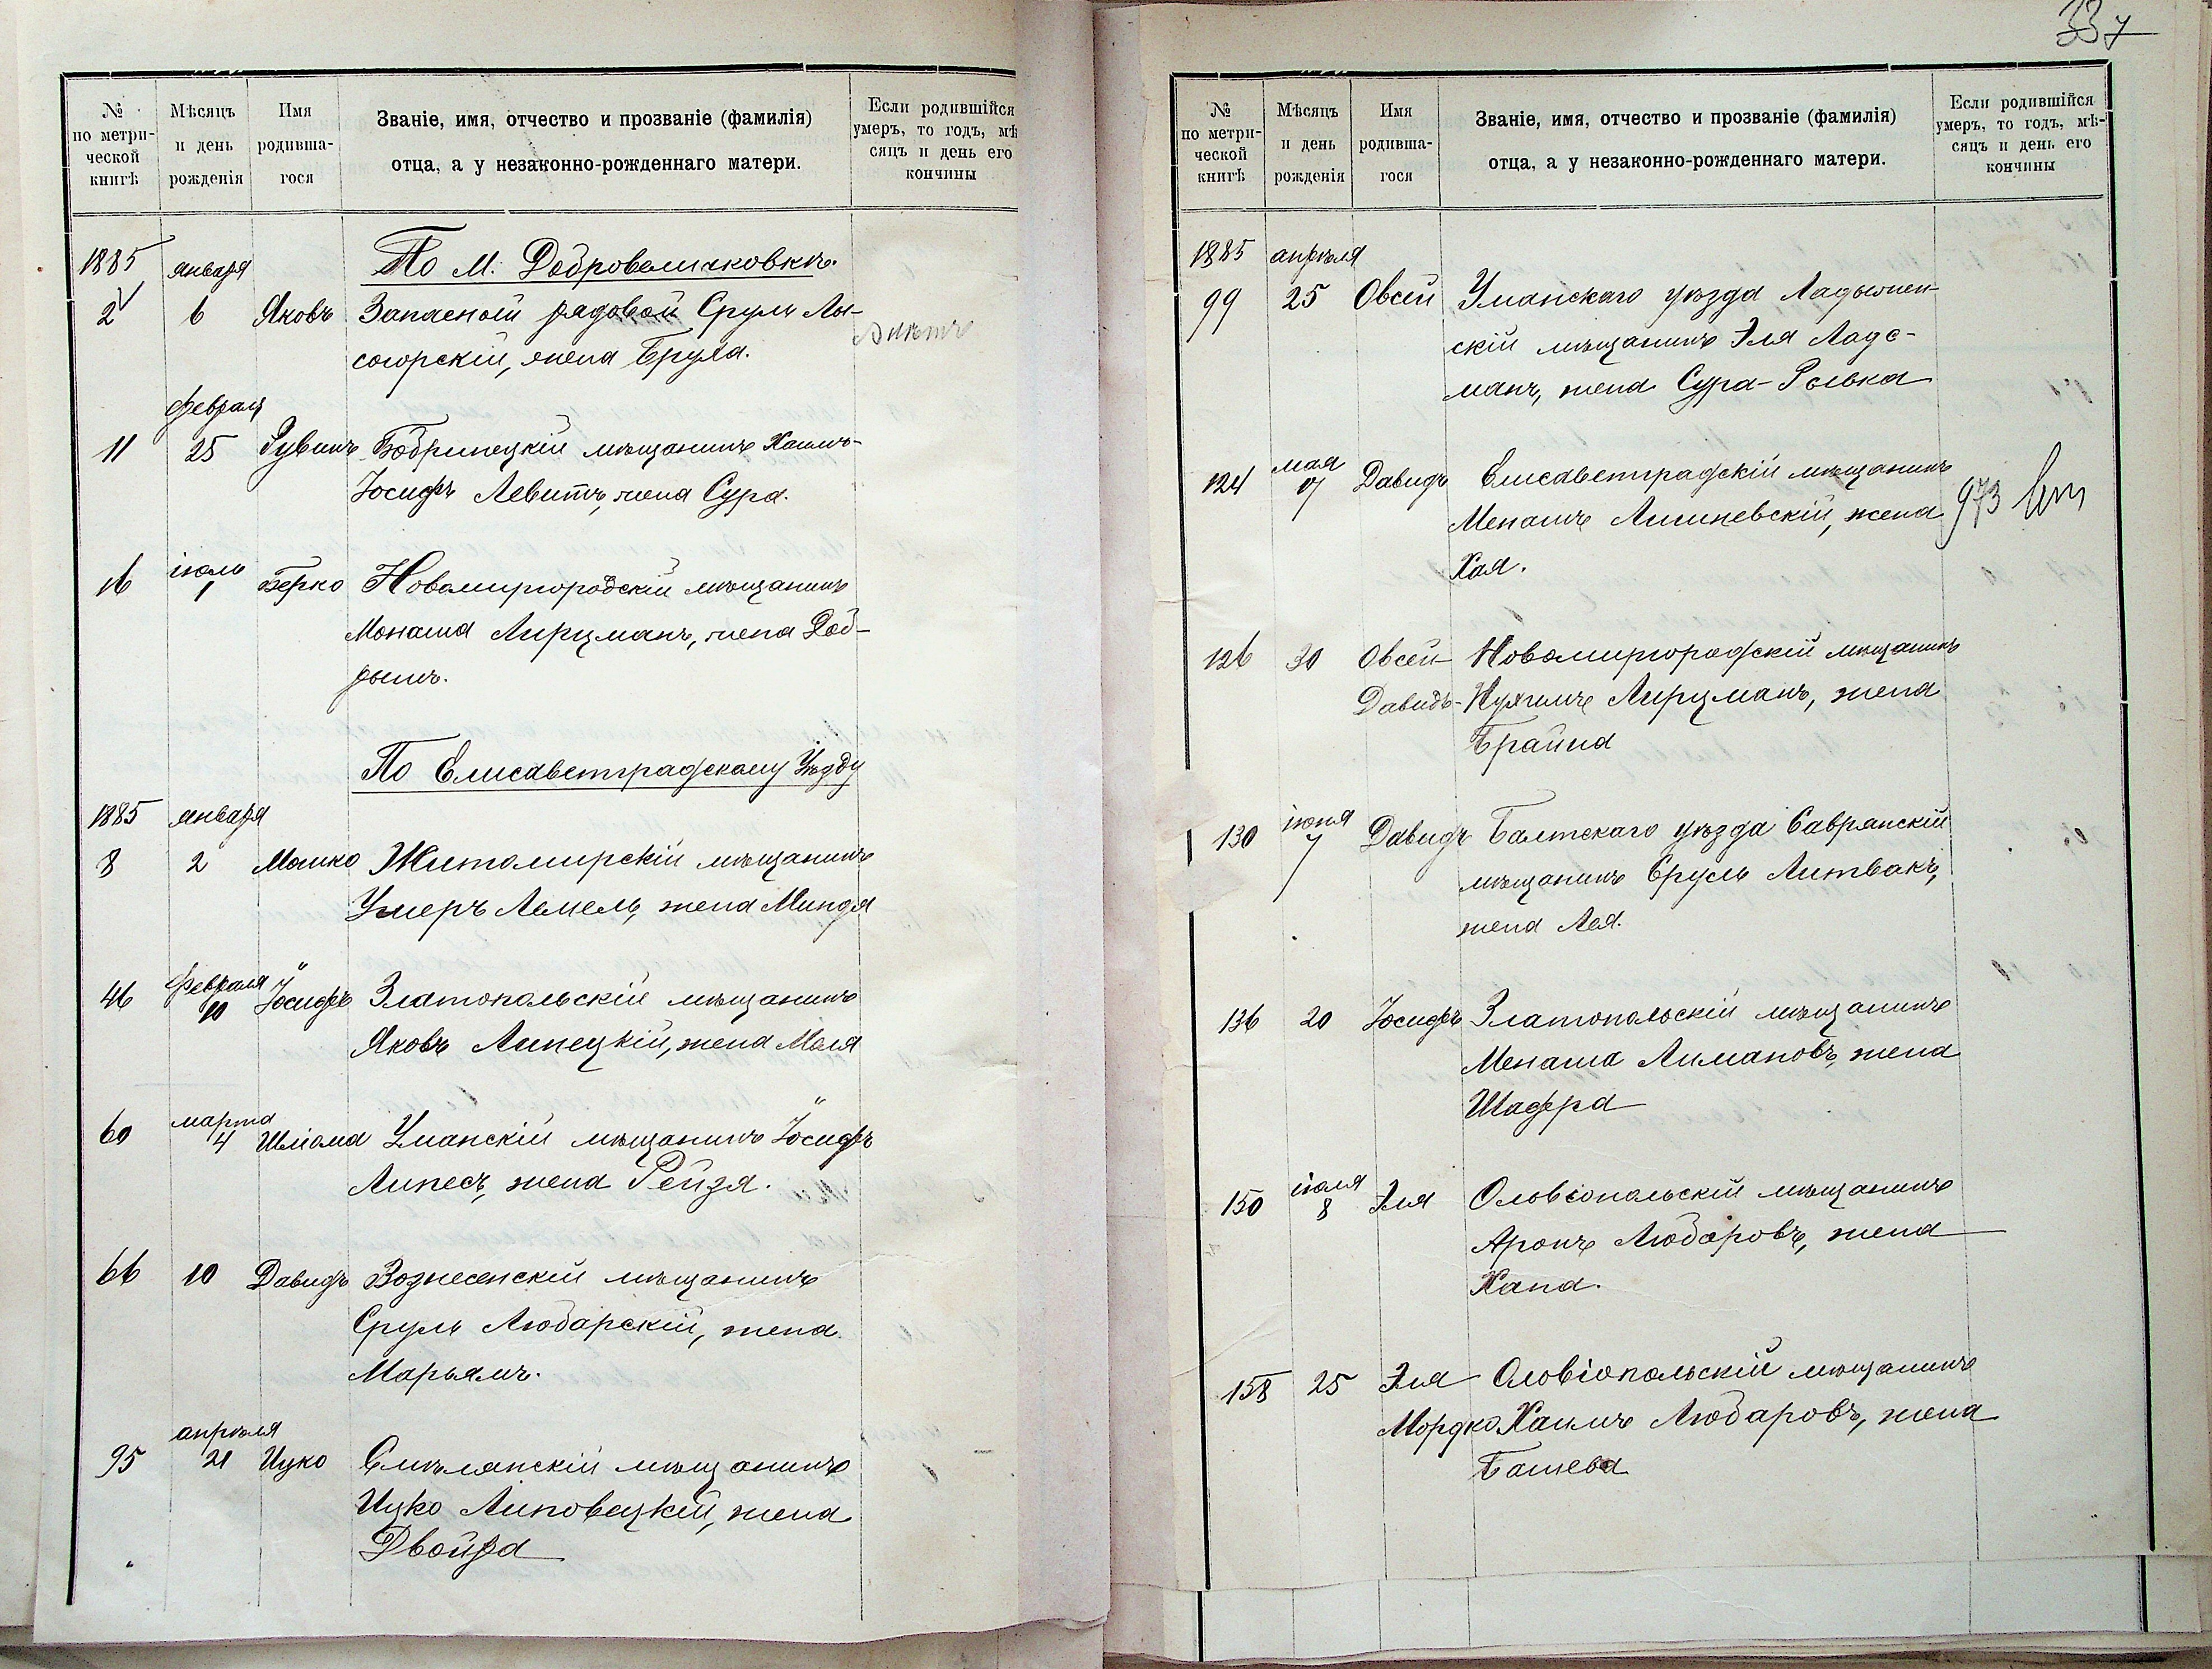 №
по метри-
ческой
книгѣ
Мѣсяцъ
и день
рожденія
Имя
родивша-
гося
Званіе, имя, отчество и прозваніе (фамилія)
отца, а у незаконно-рожденнаго матери.
Если родившійся
умеръ, то годъ, мѣ
сяцъ и день его
кончины
По м. Добровеличковкѣ.
1885 января
2 6 Яковъ Запасной рядовой Сруль Лы-
согорскій, жена Бруха.
февраля
11 25 Рувинъ Бобринецкій мѣщанинъ Хаимъ-
Іосифъ Левитъ, жена Сура.
іюль
16 1 Берко Новомиргородскій мѣщанинъ
Монаша Лирцманъ, жена Доб-
рышъ.
По Елисаветградскому Уѣзду
1885 января
8 2 Мошко Житомирскій мѣщанинъ
Ушеръ Лемель, жена Миндя
февраля
46 10 Іосифъ Златопольскій мѣщанинъ
Яковъ Липецкій, жена Маля
марта
60 4 Шліома Уманскій мѣщанинъ Іосифъ
Липесъ, жена Рейзя.
66 10 Давидъ Вознесенскій мѣщанинъ
Сруль Любарскій, жена
Марьямъ.
апрѣля
95 21 Ицко Смѣлянскій мѣщанинъ
Ицко Липовецкій, жена
Двойра
337
№
по метри-
ческой
книгѣ
Мѣсяцъ
и день
рожденія
Имя
родивша-
гося
Званіе, имя, отчество и прозваніе (фамилія)
отца, а у незаконно-рожденнаго матери.
Если родившійся
умеръ, то годъ, мѣ-
сяцъ и день его
кончины
1885 апрѣля
99 25 Овсей Уманскаго уѣзда Ладыжен-
скій мѣщанинъ Эля Ладс-
манъ, жена Сура-Ривка
мая
124 17 Давидъ Елисаветградскій мѣщанинъ
Менашъ Лишневскій, жена 973
Хая.
126 30 Овсей- Новомиргородскій мѣщанинъ
Давидъ- Нухимъ Лирцманъ, жена
Брайна
іюня
130 7 Давидъ Балтскаго уѣзда Саврянскій
мѣщанинъ Сруль Литвакъ,
жена Лея.
136 20 Іосифъ Златопольскій мѣщанинъ
Менаша Лимановъ, жена
Шафра
іюля
150 8 Эля Ольвіопольскій мѣщанинъ
Аронъ Любаровъ, жена
Хана.
158 25 Эля Ольвіопольскій мѣщанинъ
Мордко Хаимъ Любаровъ, жена
Башева